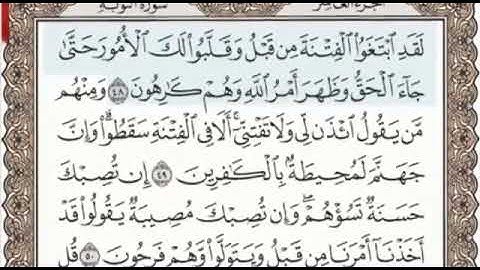 سورة التوبة الجزء العاشر
لَقَدِ ٱبْتَغَوُا۟ ٱلْفِتْنَةَ مِن قَبْلُ وَقَلَّبُوا۟ لَكَ ٱلْأُمُورَ حَتَّىٰ
جَآءَ ٱلْحَقُّ وَظَهَرَ أَمْرُ ٱللَّهِ وَهُمْ كَٰرِهُونَ ٤٨ وَمِنْهُم
مَّن يَقُولُ ٱئْذَن لِّى وَلَا تَفْتِنِّىٓ ۚ أَلَا فِى ٱلْفِتْنَةِ سَقَطُوا۟ ۗ وَإِنَّ
جَهَنَّمَ لَمُحِيطَةٌۢ بِٱلْكَٰفِرِينَ ٤٩ إِن تُصِبْكَ
حَسَنَةٌ تَسُؤْهُمْ ۖ وَإِن تُصِبْكَ مُصِيبَةٌ يَقُولُوا۟ قَدْ
أَخَذْنَآ أَمْرَنَا مِن قَبْلُ وَيَتَوَلَّوا۟ وَّهُمْ فَرِحُونَ ٥٠ قُل